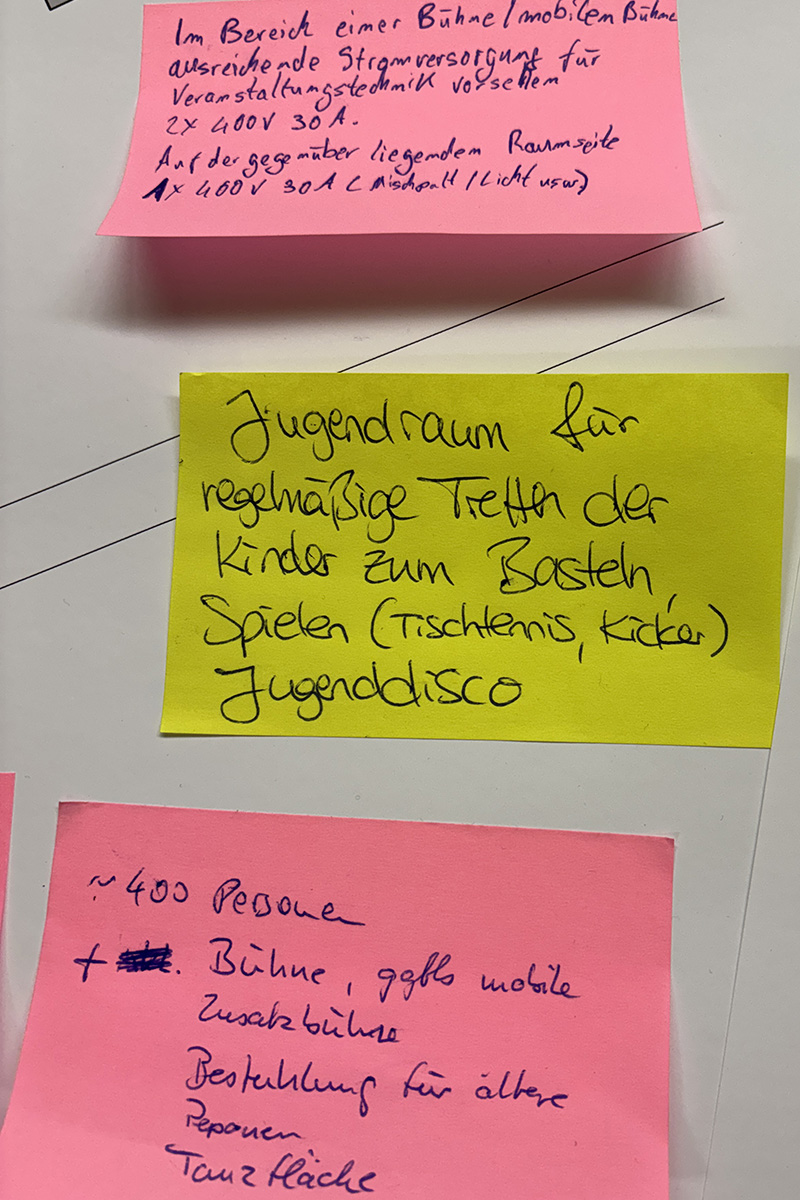 Im Bereich einer Bühne/mobilen Bühne
ausreichende Stromversorgung für
Veranstaltungstechnik vorsehen
2x 400V 30A.
Auf der gegenüber liegendem Raumseite
1x 400V 30A (Mischpult/Licht usw)
Jugendraum für
regelmäßige Treffen der
Kinder zum Basteln,
Spielen (Tischtennis, Kicker)
Jugenddisco
~ 400 Personen
+ Bühne, ggfls mobile
Zusatzbühne
Bestuhlung für ältere
Personen
Tanzfläche